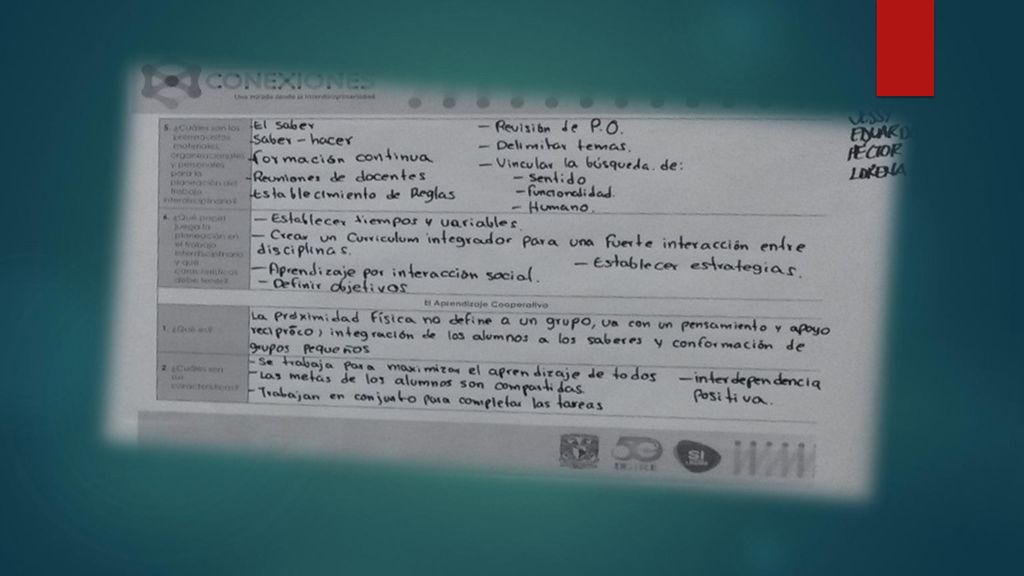 CONEXIONES
Una mirada desde la interdisciplinariedad
JESSY
EDUARD
HECTOR
LORENA
5. ¿Cuáles son los prerrequisitos materiales, organizacionales y personales para la planeación del trabajo interdisciplinario?
El saber
Saber-hacer
formación continua
-Reuniones de docentes
-Establecimiento de Reglas
- Revisión de P.O.
- Delimitar temas.
- Vincular la búsqueda de:
- Sentido
- funcionalidad.
- Humano.
6. ¿Qué papel juega la planeación en el trabajo interdisciplinario y qué características debe tener?
- Establecer tiempos y variables.
- Crear un Curriculum integrador para una fuerte interacción entre
disciplinas.
- Establecer estrategias.
- Aprendizaje por interacción social.
- Definir objetivos
El Aprendizaje Cooperativo
1. ¿Qué es?
La próximidad física no define a un grupo, va con un pensamiento y apoyo
recíproco, integración de los alumnos a los saberes y conformación de
grupos pequeños
2. ¿Cuáles son sus características?
- Se trabaja para maximizar el aprendizaje de todos
- Las metas de los alumnos son compartidas.
- Trabajan en conjunto para completar las tareas
- interdependencia
positiva.
50
SI